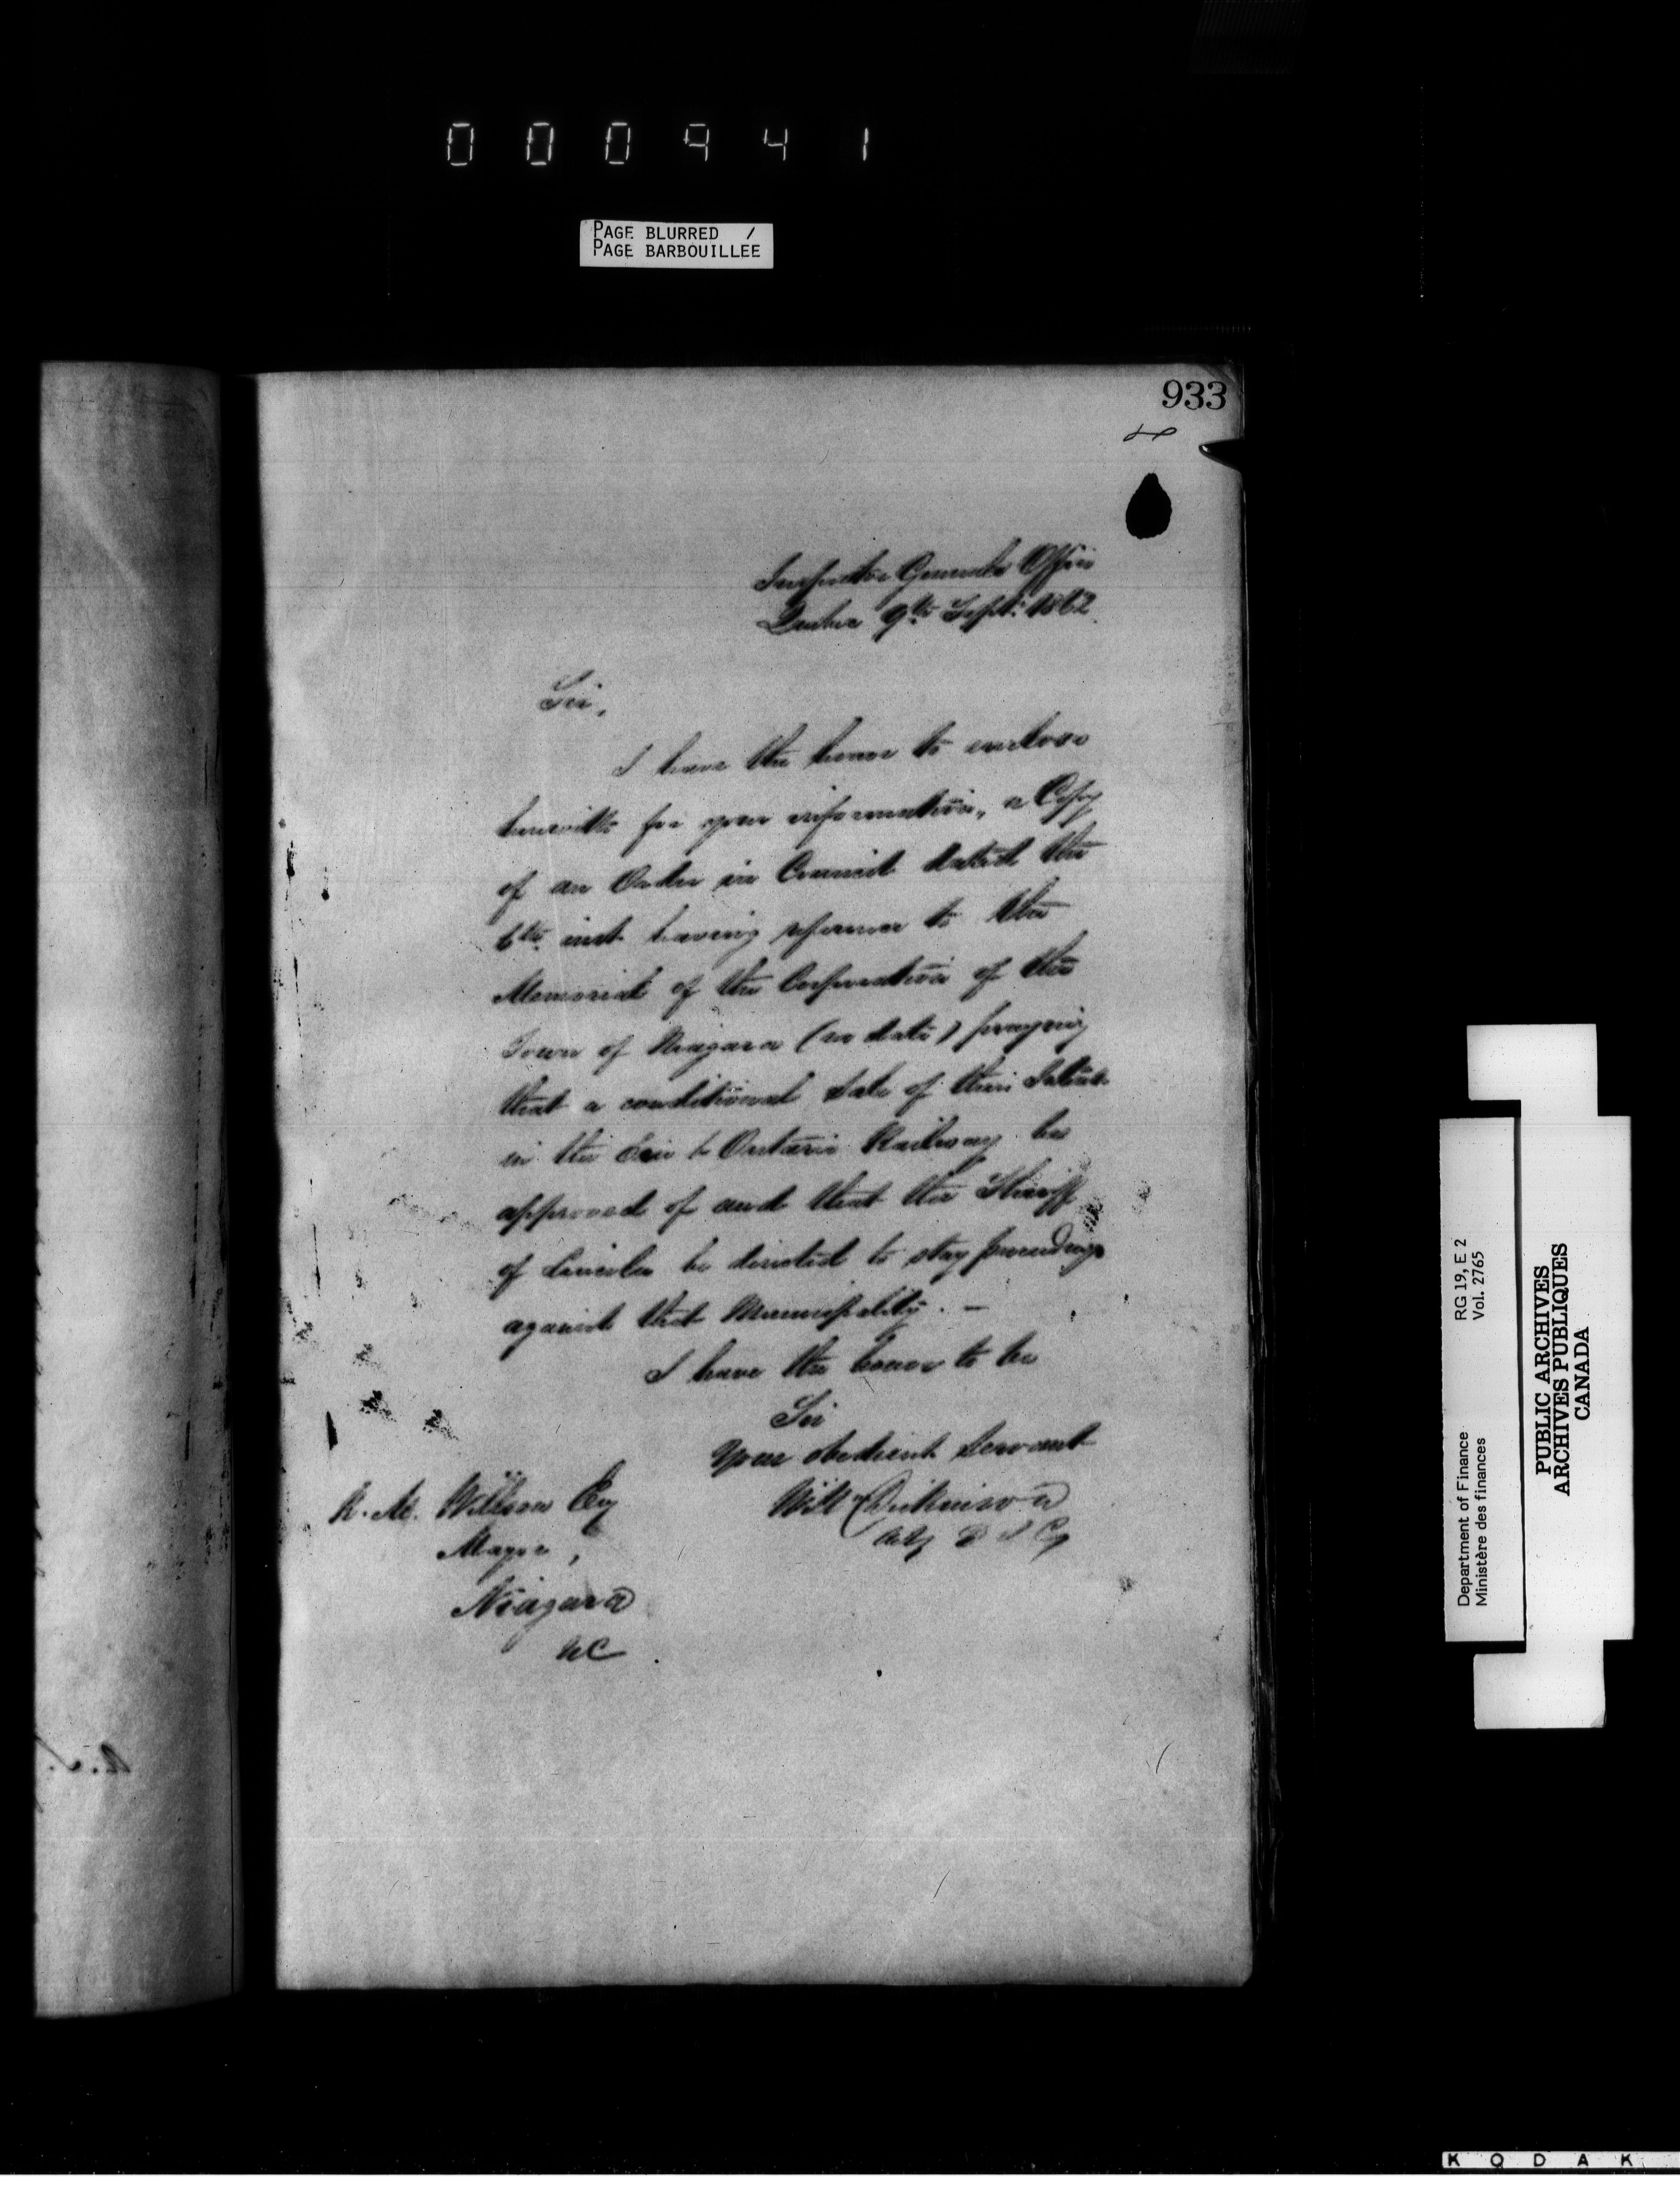 000941
PAGE BLURRED /
PAGE BARBOUILLEE
933
Inspector Generals Office
Quebec 9th Sept: 1862.
Sir,
I have the honor to enclose
herewith for your information, a Copy
of an Order in Council dated the
6th inst having reference to the
Memorial of the Corporation of the
Town of Niagara (no date) praying
that a conditional Sale of their
in the Erie & Ontario Railway be
approved of and that the Sheriff
of Lincoln be directed to stay proceedings
against that Municipality. —
I have the honor to be
Sir
Your obedient Servant
Will Dickinson
Actg D I G
R. M. Willson Esq
Mayor,
Niagara
UC
Department of Finance
Ministère des finances
RG 19, E 2
Vol. 2765
PUBLIC ARCHIVES
ARCHIVES PUBLIQUES
CANADA
KODAK